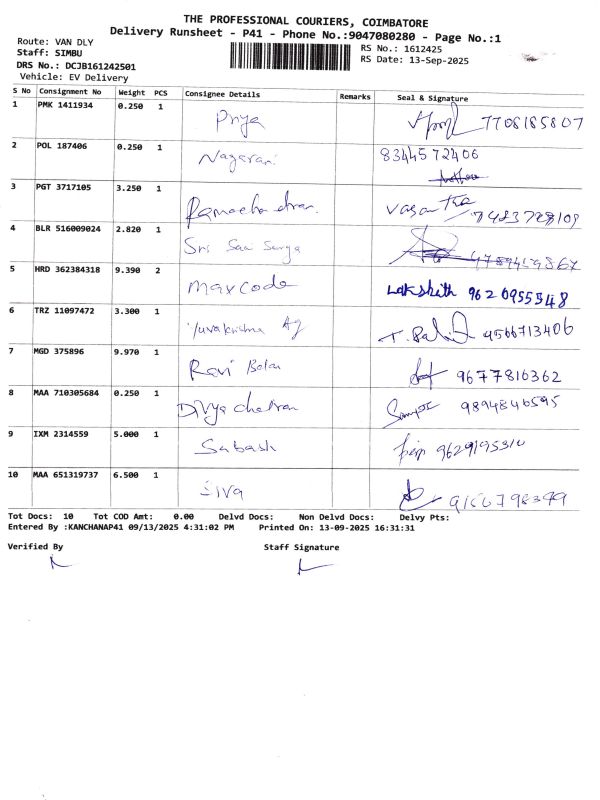 THE PROFESSIONAL COURIERS, COIMBATORE
Delivery Runsheet - P41 - Phone No.:9047080280 - Page No.:1
Route: VAN DLY
Staff: SIMBU
RS No.: 1612425
DRS No.: DCJB161242501
RS Date: 13-Sep-2025
Vehicle: EV Delivery
S No Consignment No Weight PCS Consignee Details Remarks Seal & Signature
1 PMK 1411934 0.250 1 Priya 7708185807
2 POL 187406 0.250 1 Nagarani 8344572406
3 PGT 3717105 3.250 1 Ramachandran. Vasantha
4 BLR 516009024 2.820 1 Sri Sai Surya
5 HRD 362384318 9.390 2 maxcode Lakshith 9620955548
6 TRZ 11097472 3.300 1 Yuvakrishna 9566713406
7 MGD 375896 9.970 1 Ravi Balan 9677816362
8 MAA 710305684 0.250 1 9894846595
9 IXM 2314559 5.000 1 Sabash 9629195310
10 MAA 651319737 6.500 1 Siva
Tot Docs: 10 Tot COD Amt: 0.00 Delvd Docs: Non Delvd Docs: Delvy Pts:
Entered By :KANCHANAP41 09/13/2025 4:31:02 PM Printed On: 13-09-2025 16:31:31
Verified By Staff Signature